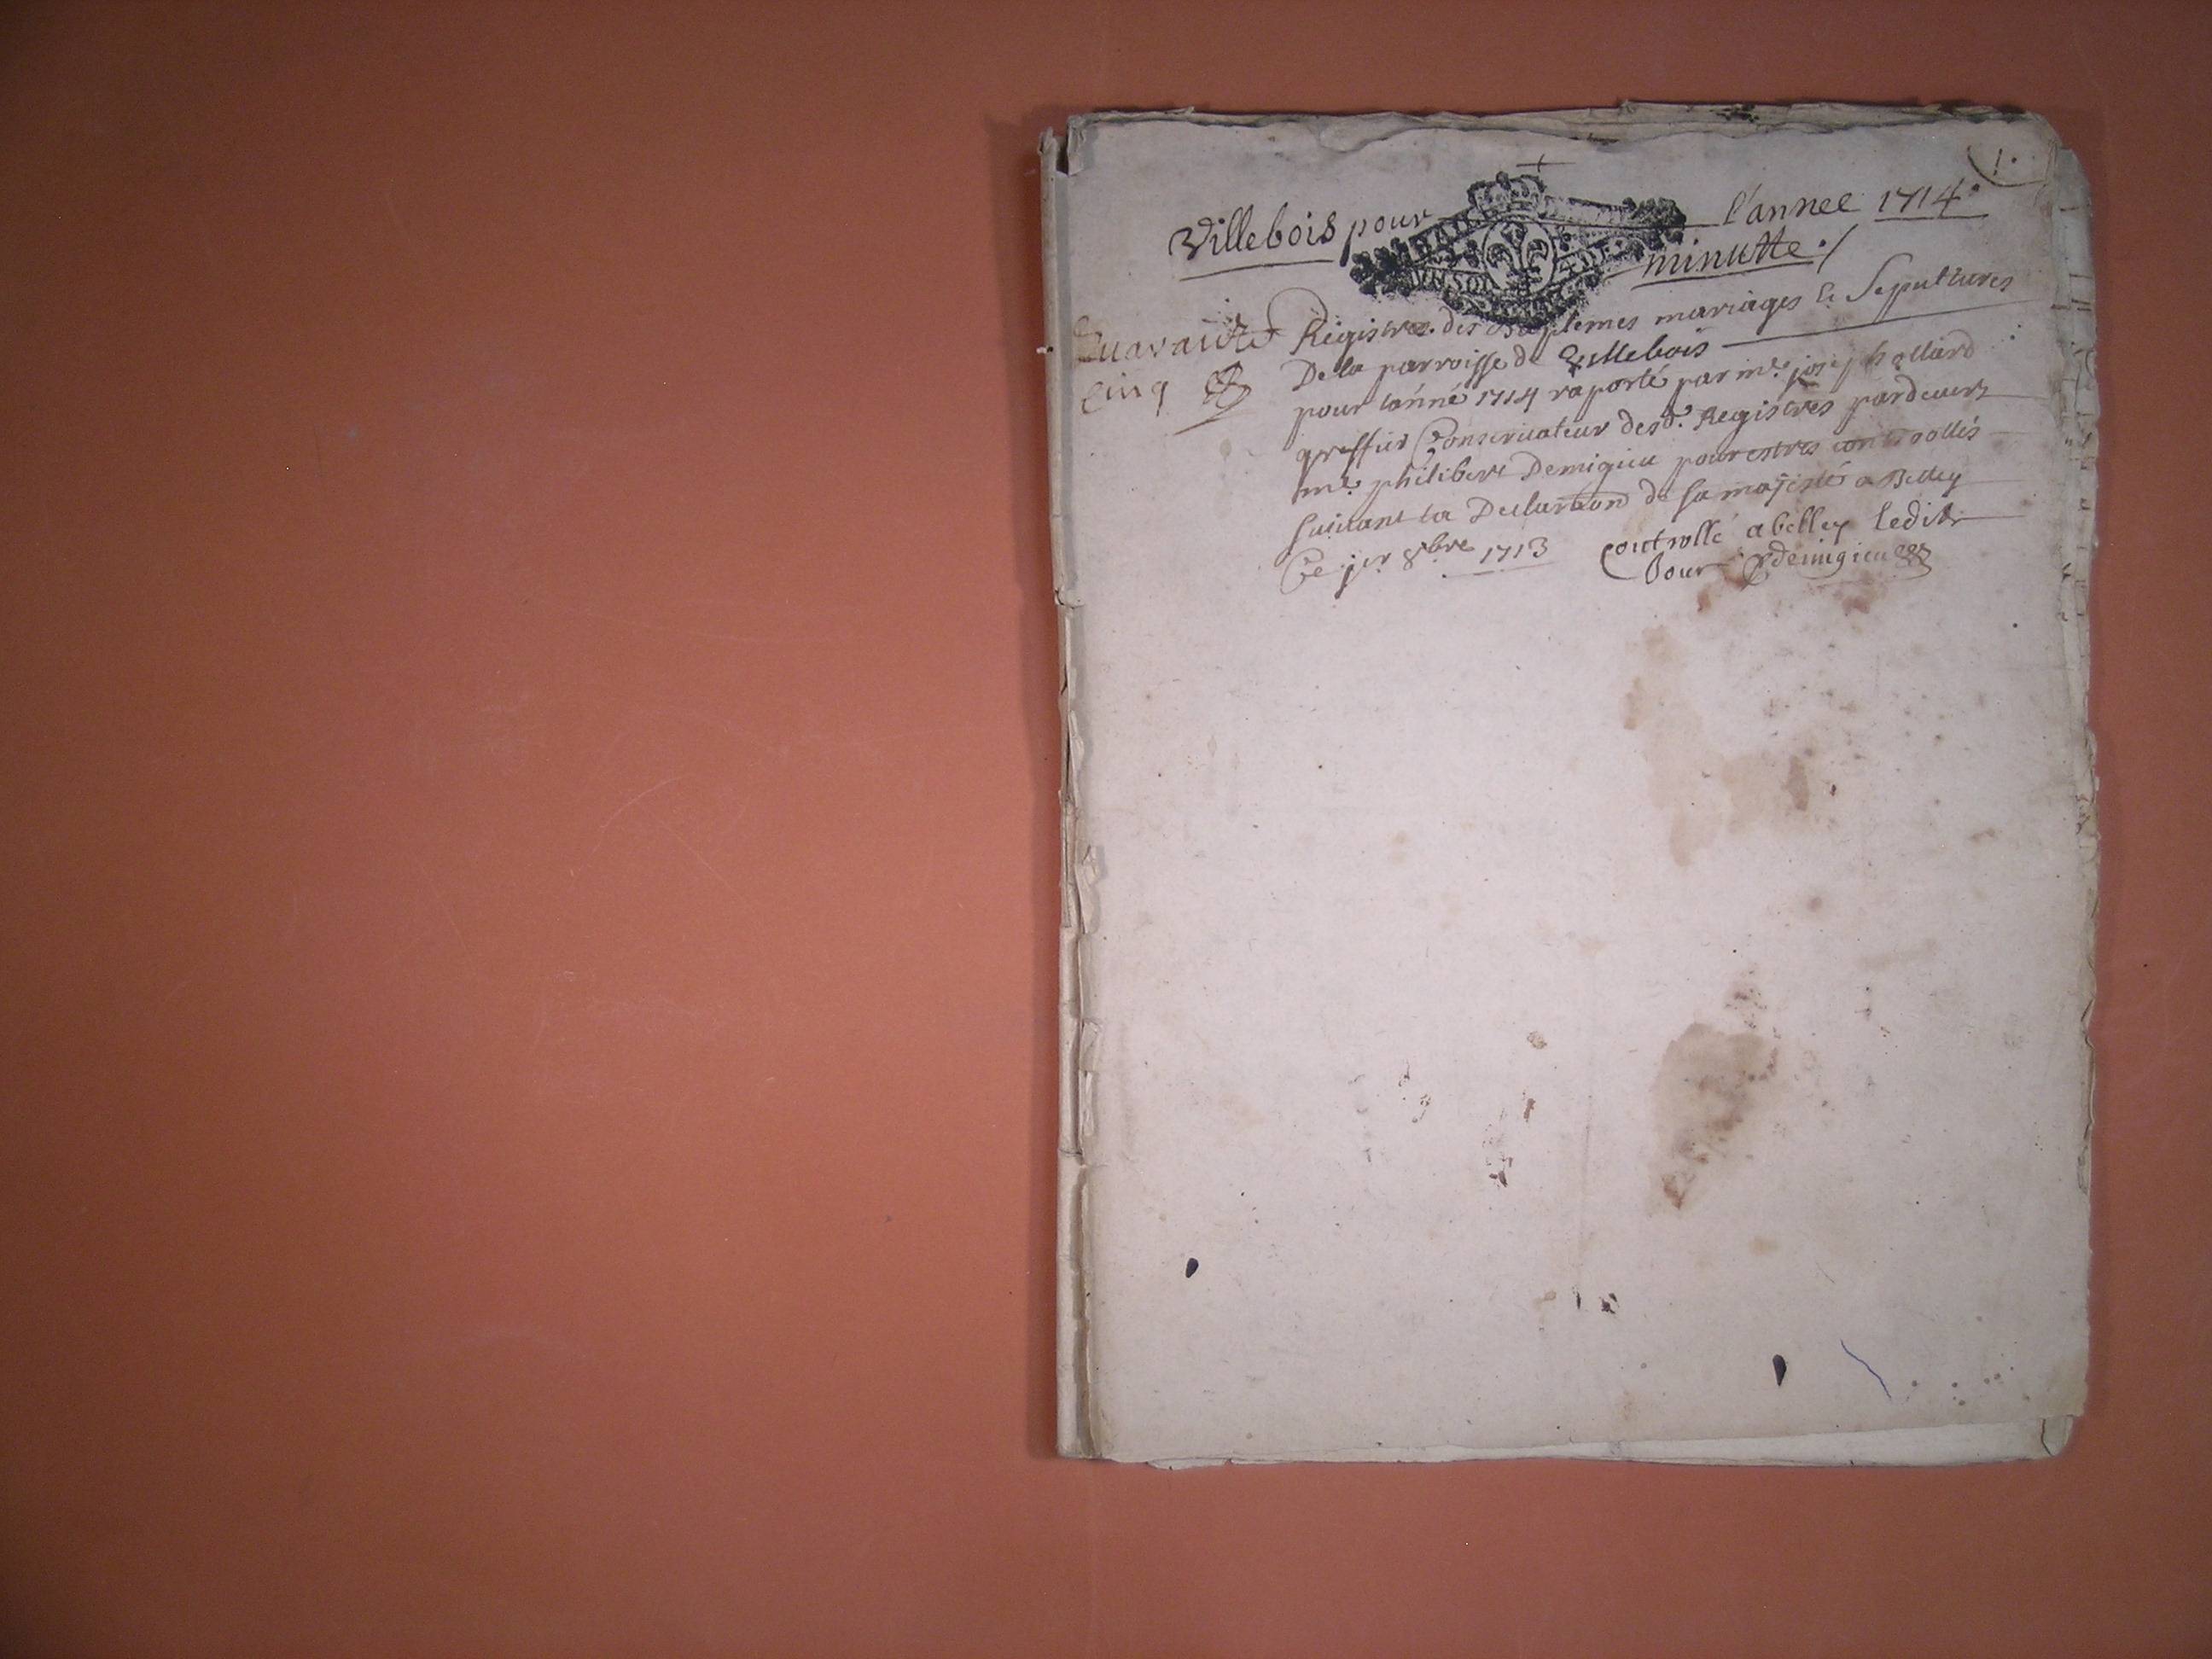 1.
Villebois pour l'annee 1714.
minutte ./
quarante
cinq
Registres des Baptemes mariages & Sepultures
De la parroisse de Villebois
pour l'anné 1714 raporté par me. joseph ollard
greffier Conservateur desd. Registres pardevers
me. philibert Demigieu pour estres controollés
suivant la Declaration de sa majesté a Belley
Ce jer 8bre 1713
controllé a belley ledit
jour Demigieu